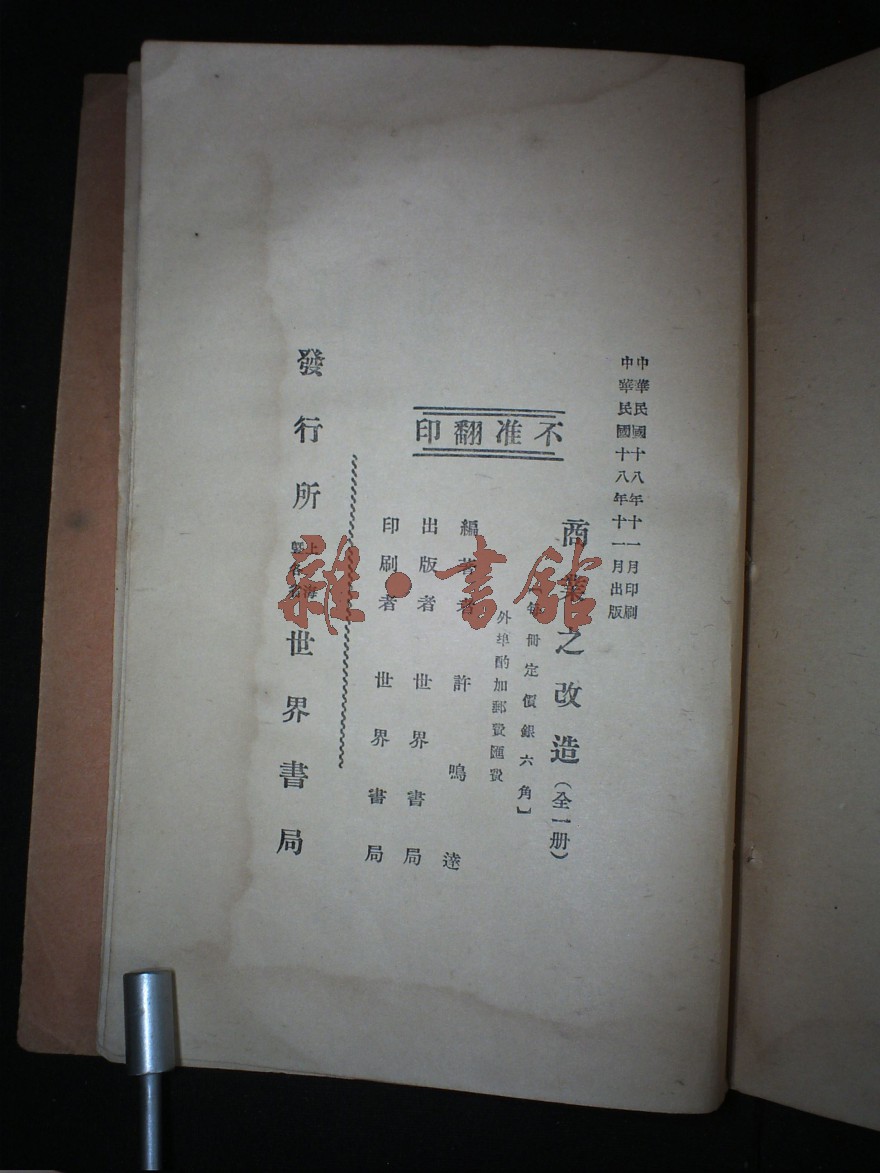 中華民國十八年十一月印刷
中華民國十八年十一月出版
商業之改造（全一册）
每冊定價銀六角】
外埠酌加郵費匯費
不准翻印
編著者 許鳴達
出版者 世界書局
印刷者 世界書局
發行所 上海 曁各省 世界書局
雜·書館